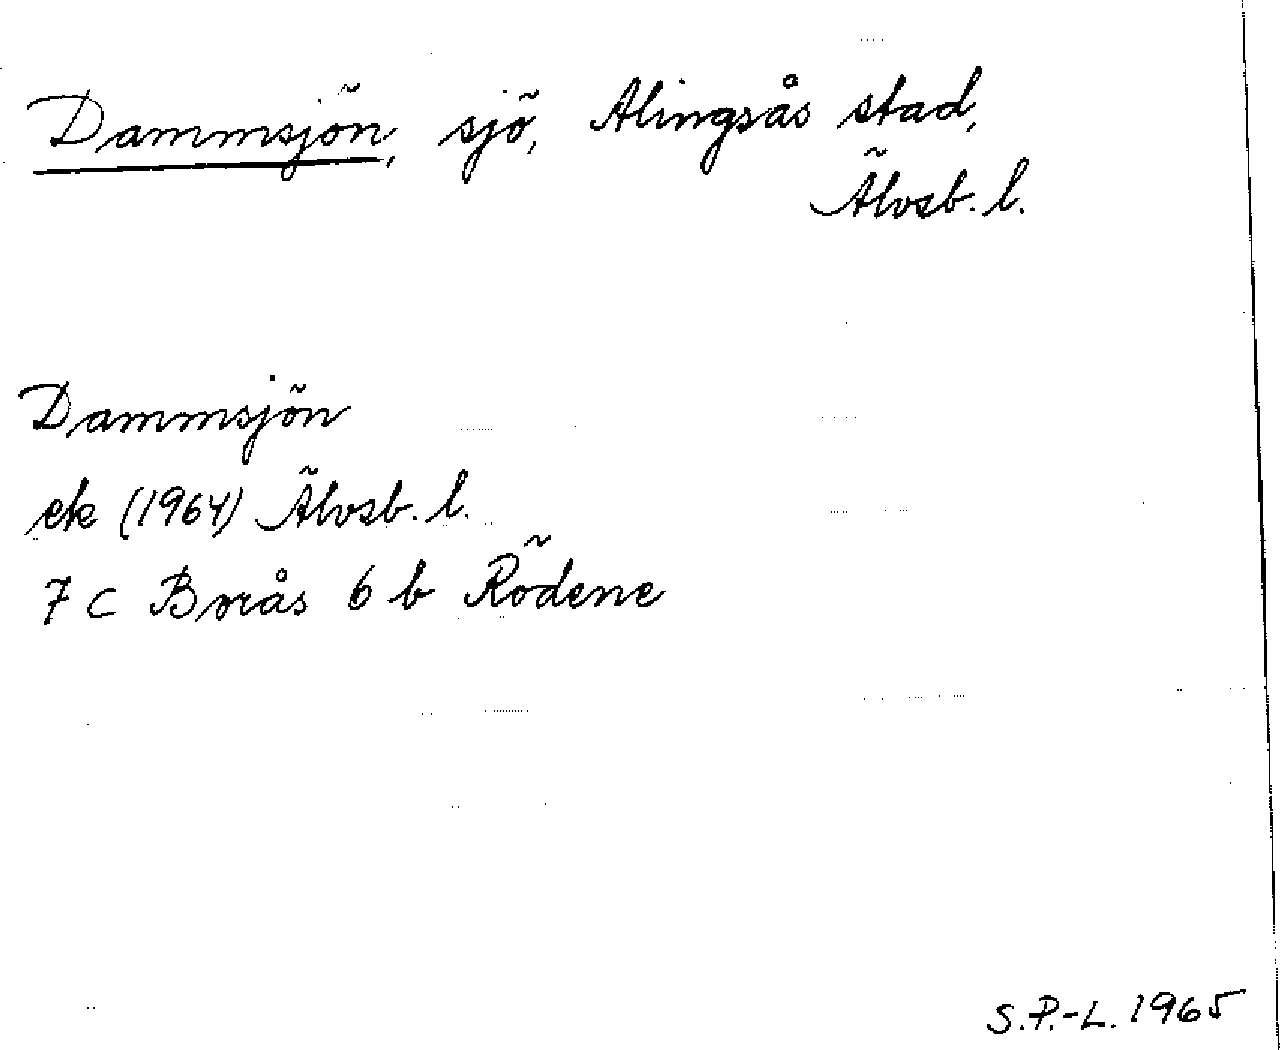 Dammsjön, sjö, Alingsås stad,
Älvsb. l.
Dammsjön
ek (1964) Älvsb. l.
7 C Borås 6 b Rödene
S.P.-L. 1965